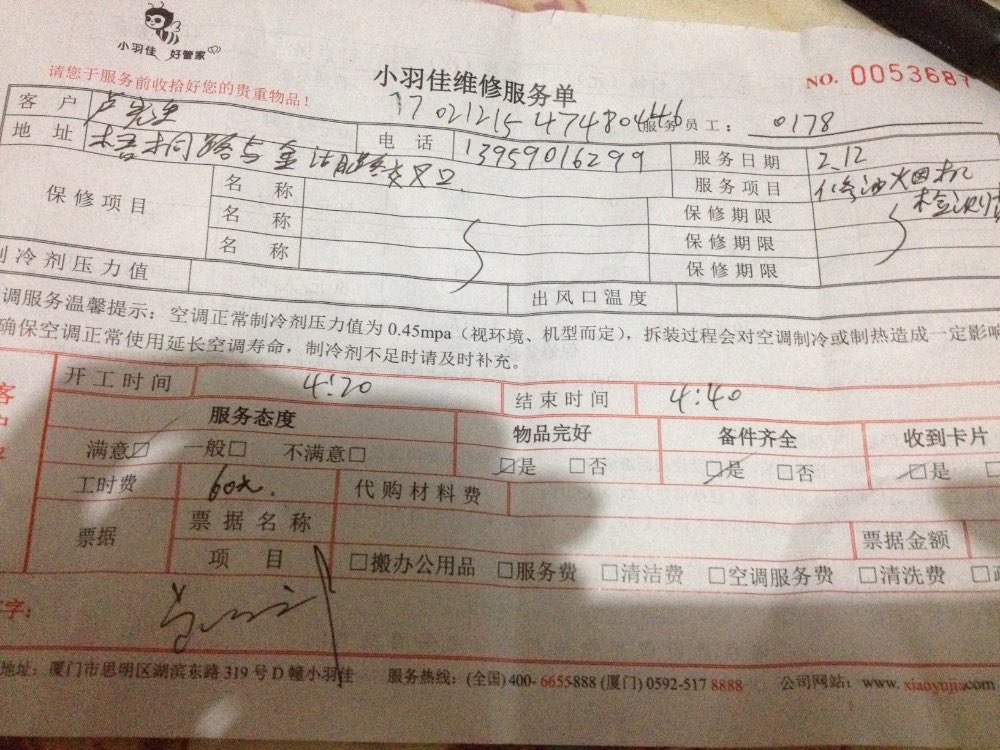 小羽佳 好管家
请您于服务前收拾好您的贵重物品！
小羽佳维修服务单
NO. 0053687
1702121547480446
服务员工： 0178
客户 卢先生 电话 13959016299 服务日期 2.12
地址 梧桐路与金 路交叉口 服务项目 修油烟机
检测
保修项目 名称 保修期限
名称 保修期限
名称 保修期限
制冷剂压力值 出风口温度
调服务温馨提示：空调正常制冷剂压力值为 0.45mpa（视环境、机型而定），拆装过程会对空调制冷或制热造成一定影响
确保空调正常使用延长空调寿命，制冷剂不足时请及时补充。
客户
开工时间 4:20 结束时间 4:40
服务态度 物品完好 备件齐全 收到卡片
满意☑ 一般□ 不满意□ ☑是 □否 ☑是 □否 ☑是
工时费 60元. 代购材料费
票据 票据名称 票据金额
项目 □搬办公用品 □服务费 □清洁费 □空调服务费 □清洗费
字：
地址：厦门市思明区湖滨东路 319 号 D 幢小羽佳 服务热线：(全国) 400-6655-888 (厦门) 0592-517 8888 公司网站：www.xiaoyujia.com